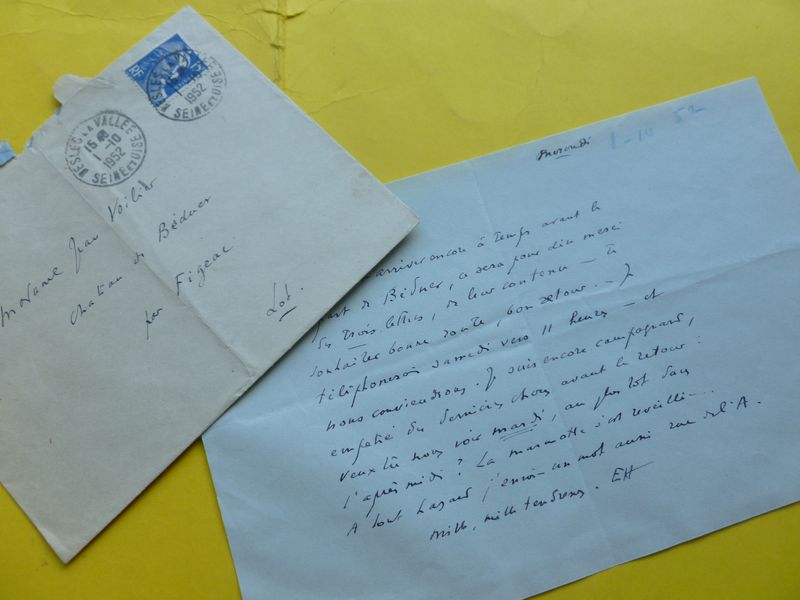 RF
NESLES LA VALLEE
15 H
1 -10
1952
SEINE ET OISE
1952
SEINE ET OISE
Madame Jean Voilier
Chateau de Béduer
par Figeac
Lot.
1-10 52
arriver encore à temps avant le
de Béduer, ce sera pour dire merci
des trois lettres, de leur contenu – te
souhaiter bonne route, bon retour. – Je
téléphonerai samedi vers 11 heures – et
nous conviendrons. Je suis encore campagnard,
empêtré des dernières choses avant le retour :
veux tu nous voir mardi, au plus tôt dans
l'après midi ? La marmotte s'est réveillée...
A tout hasard j'envoie un mot aussi rue de l'A.
Mille, mille tendresses. EH